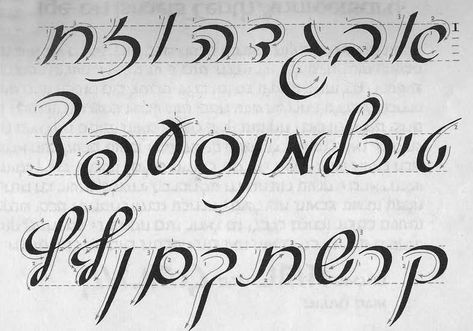 א ב ג ד ה ו ז ח
ט י כ ל מ נ ס ע פ צ
ק ר ש ת ך ם ן ף ץ